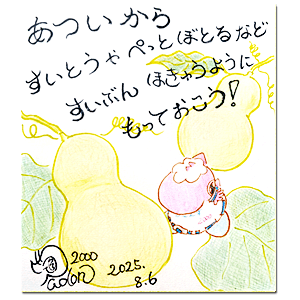 あついから
すいとうやぺっとぼとるなど
すいぶん ほきゅうように
もっておこう!
2000
2025.
8.6